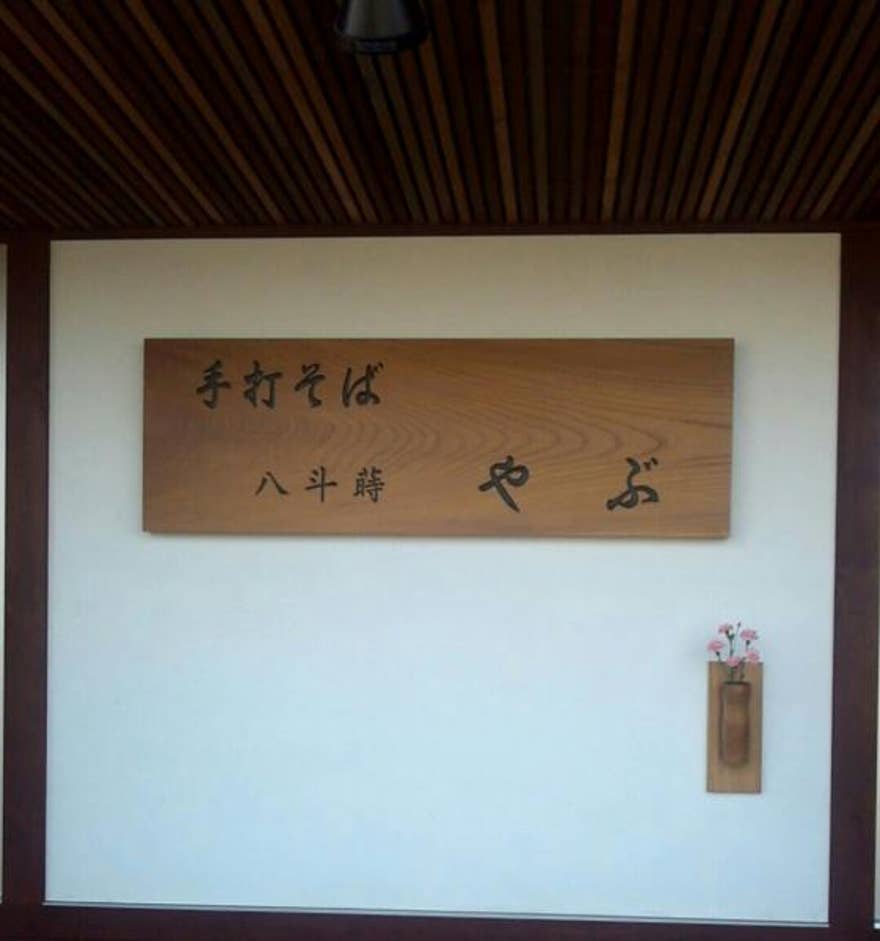 手打そば
八斗蒔 やぶ